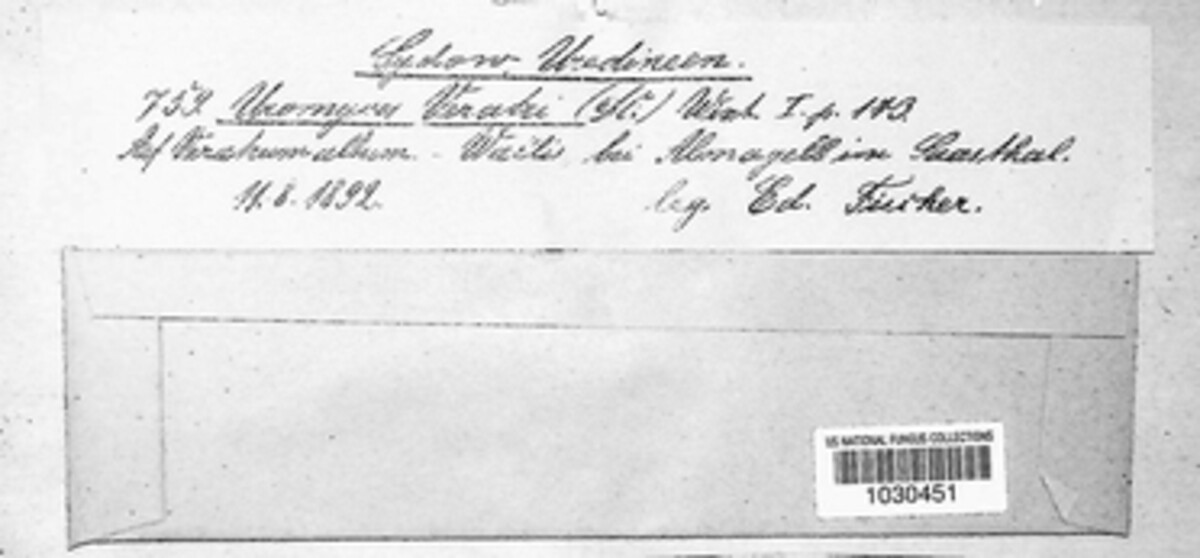 Sydow, Uredineen.
753. Uromyces Veratri (DC.) Wint. I. p. 143.
Auf Veratrum album. - bei Almagell im Saasthal.
11.8.1892. leg. Ed. Fischer.
US NATIONAL FUNGUS COLLECTIONS
1030451